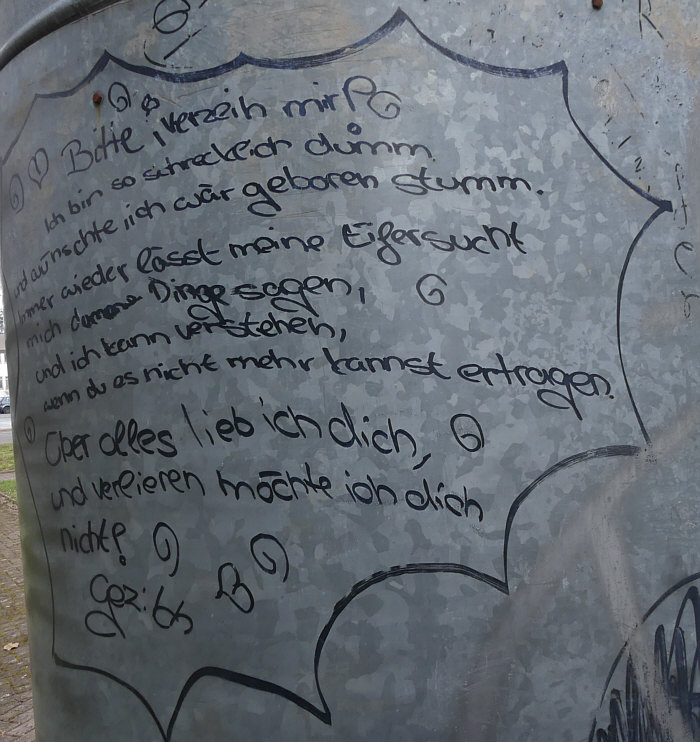 Bitte, verzeih mir!
Ich bin so schrecklich dumm
und wünschte ich wär geboren stumm.
Immer wieder lässt meine Eifersucht
mich dumme Dinge sagen,
und ich kann verstehen,
wenn du es nicht mehr kannst ertragen.
Über alles lieb ich dich,
und verlieren möchte ich dich
nicht!
Gez: